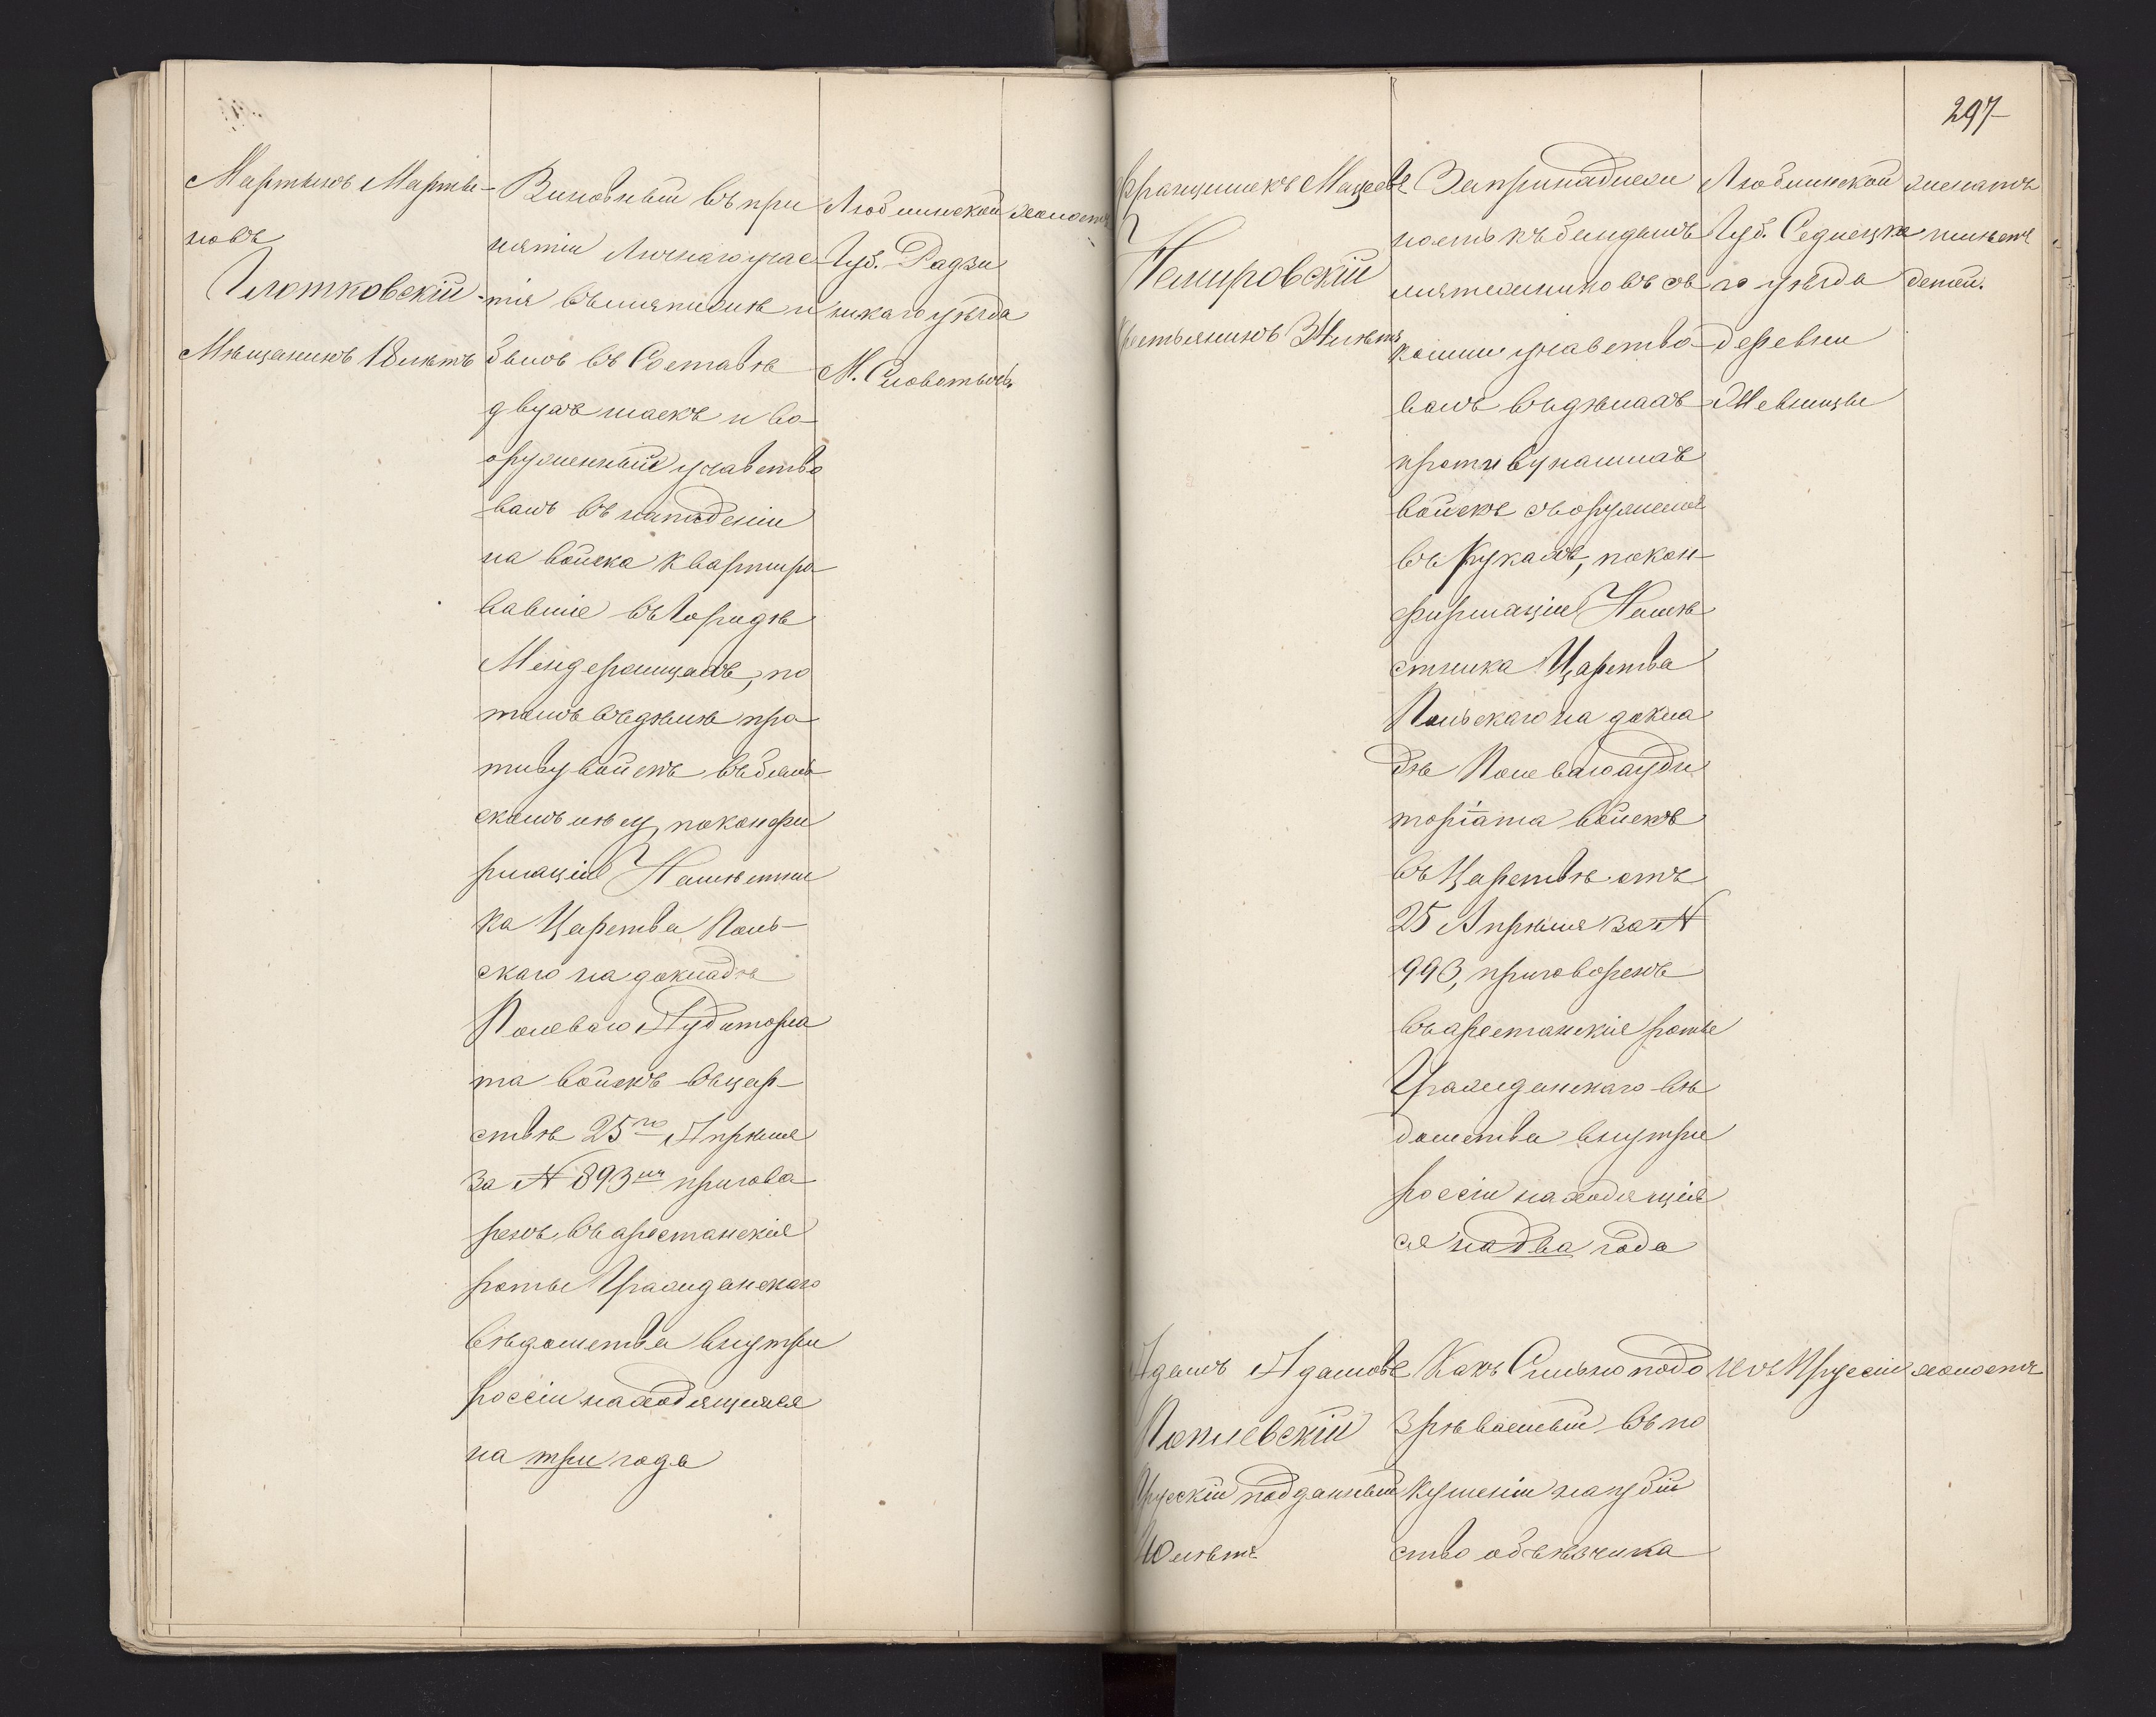 Мартынъ Марты-
новъ
Глотковскій
Мѣщанинъ 18 лѣтъ
Виновный въ при
нятіи личнаго учас
тія въ мятежѣ и
бывъ въ Составѣ
двухъ шаекъ и во-
оруженный участво
валъ въ нападеніи
на войска квартиро
вавшіе въ городѣ
по
томъ въ дѣлѣ про
тиву войскъ въ
лѣсу, по конфи
рмаціи Намѣстни
ка Царства Поль-
скаго на докладѣ
Полеваго Аудиторіа
та войскъ въ цар-
ствѣ 25го Апрѣля
за № 893мъ пригово
ренъ въ арестанскія
роты Гражданскаго
вѣдомства внутри
россіи находящіяся
на три года
Люблинской
Губ. Радзи
нскаго уѣзда
М. Словатычъ
холостъ
297
Францишекъ Мацеевъ
Немировскій
Крестьянинъ 34 лѣтъ
За принадлежи
ность къ бандамъ
мятежниковъ съ
коими участво
валъ въ дѣлахъ
противу нашихъ
войскъ съ оружіемъ
въ рукахъ, по кон-
фирмаціи Намѣ
стника Царства
Польскаго на докла
дѣ Полеваго ауди
торіата войскъ
въ Царствѣ отъ
25 Апрѣля за №
993, приговоренъ
въ арестанскіе роты
Гражданскаго вѣ
домства внутри
россіи находящіе
ся на два года
Люблинской
Губ. Седлецка
го уѣзда
деревни
женатъ
имѣетъ
детей.
Адамъ Адамовъ
Поплевскій
Прусскій подданный
40 лѣтъ
Какъ Сильно подо
зрѣваемый въ по
кушеніи на убій
ство объѣзчика
изъ Пруссіи
холостъ